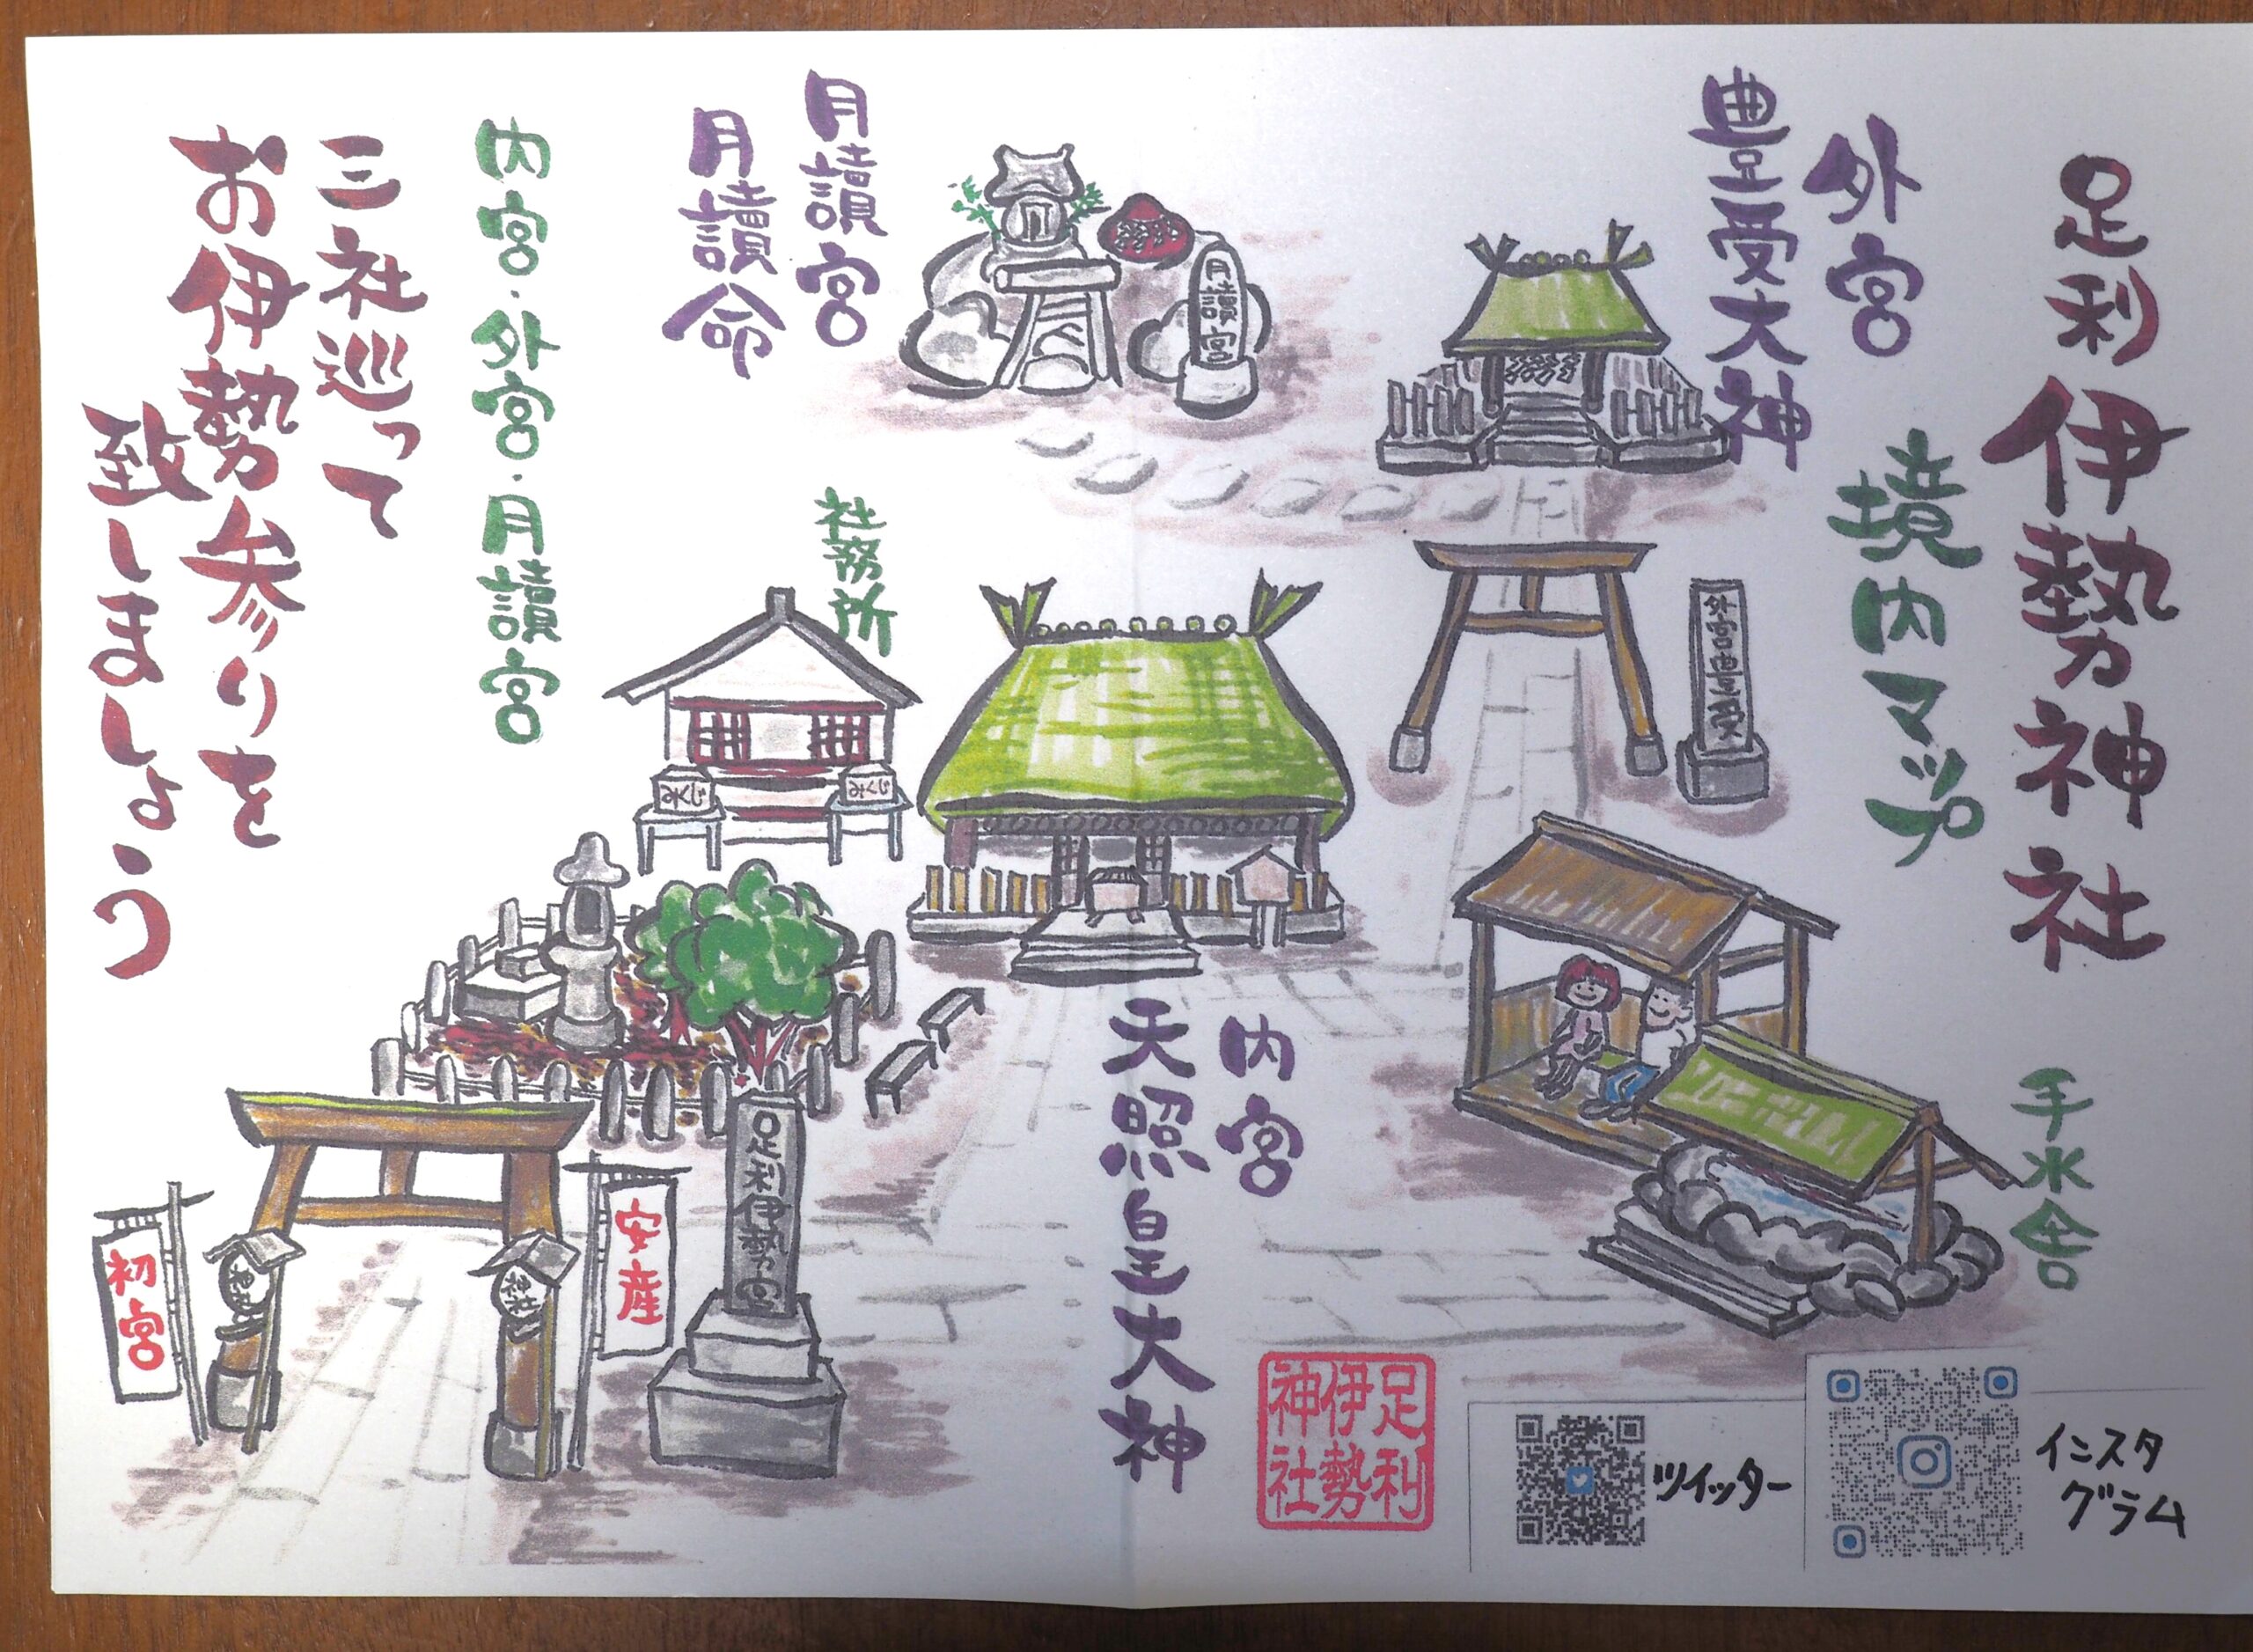 足利伊勢神社
境内マップ
外宮
豊受大神
月讀宮
月讀命
内宮・外宮・月讀宮
三社巡って
お伊勢参りを
致しましょう
月讀宮
外宮豊受
社務所
内宮
天照皇大神
手水舎
足利伊勢宮
安産
初宮
足利
伊勢
神社
ツイッター
インスタ
グラム